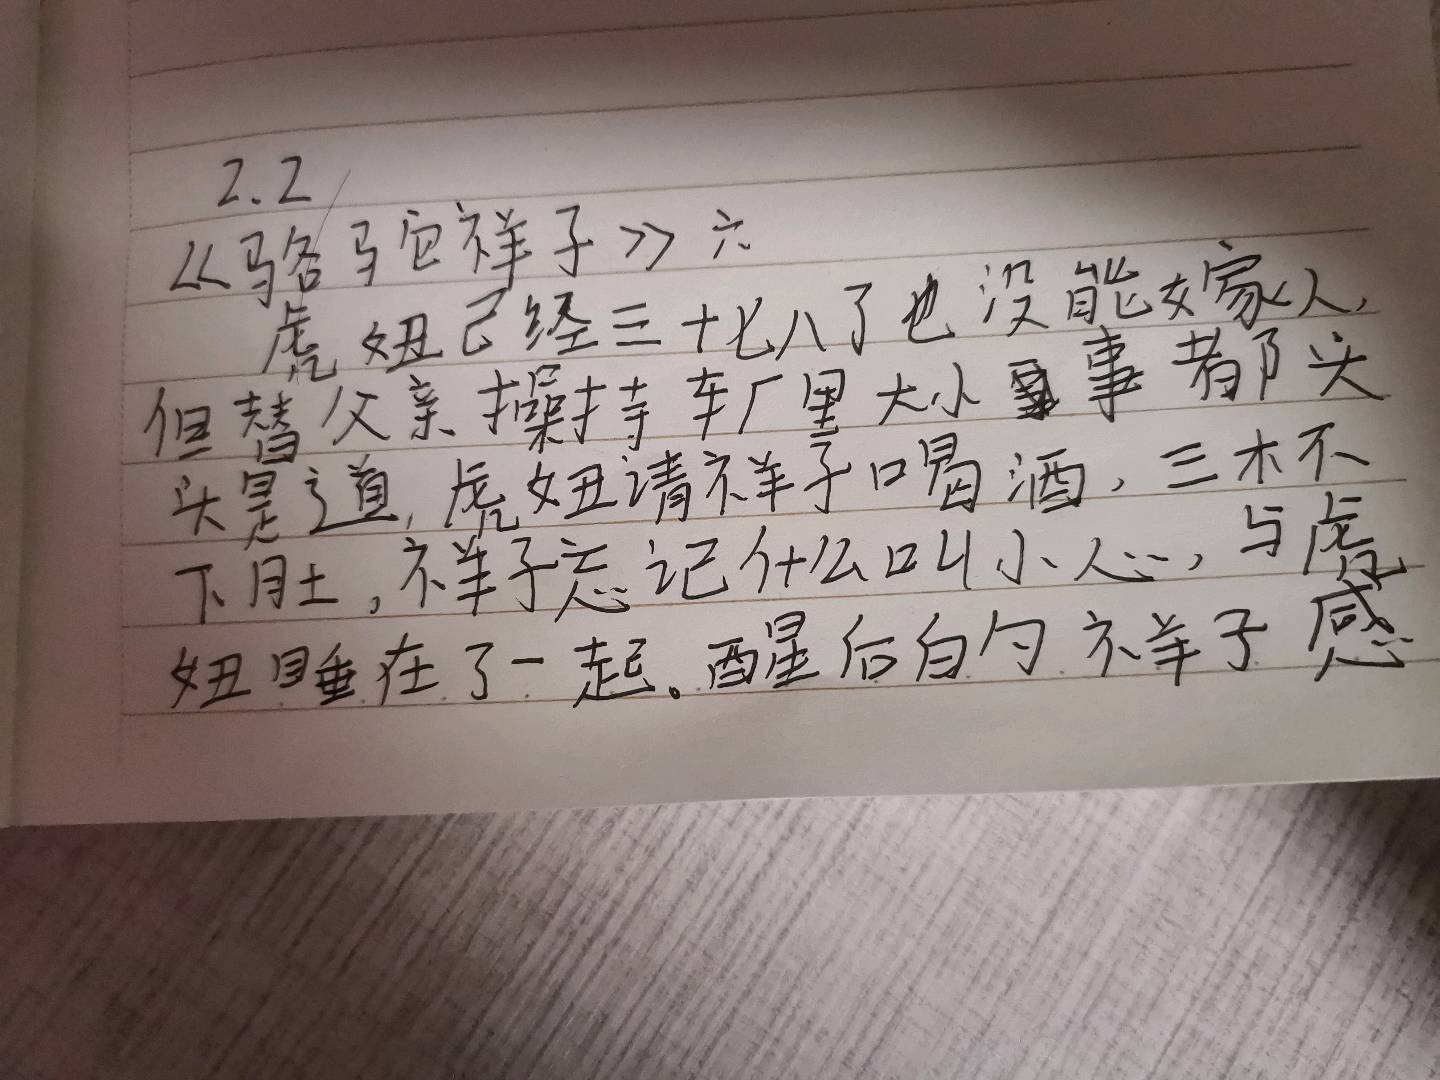 2.2
《骆驼祥子》六
虎妞已经三十七八了也没能嫁人,
但替父亲操持车厂里大小事都头
头是道,虎妞请祥子喝酒,三木不
下肚,祥子忘记什么叫小心,与虎
妞睡在了一起。醒后的祥子感